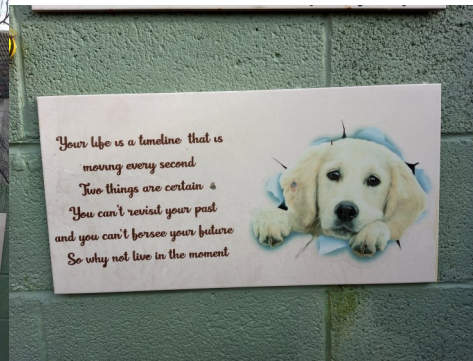 Your life is a timeline that is
moving every second
Two things are certain
You can't revisit your past
and you can't forsee your future
So why not live in the moment